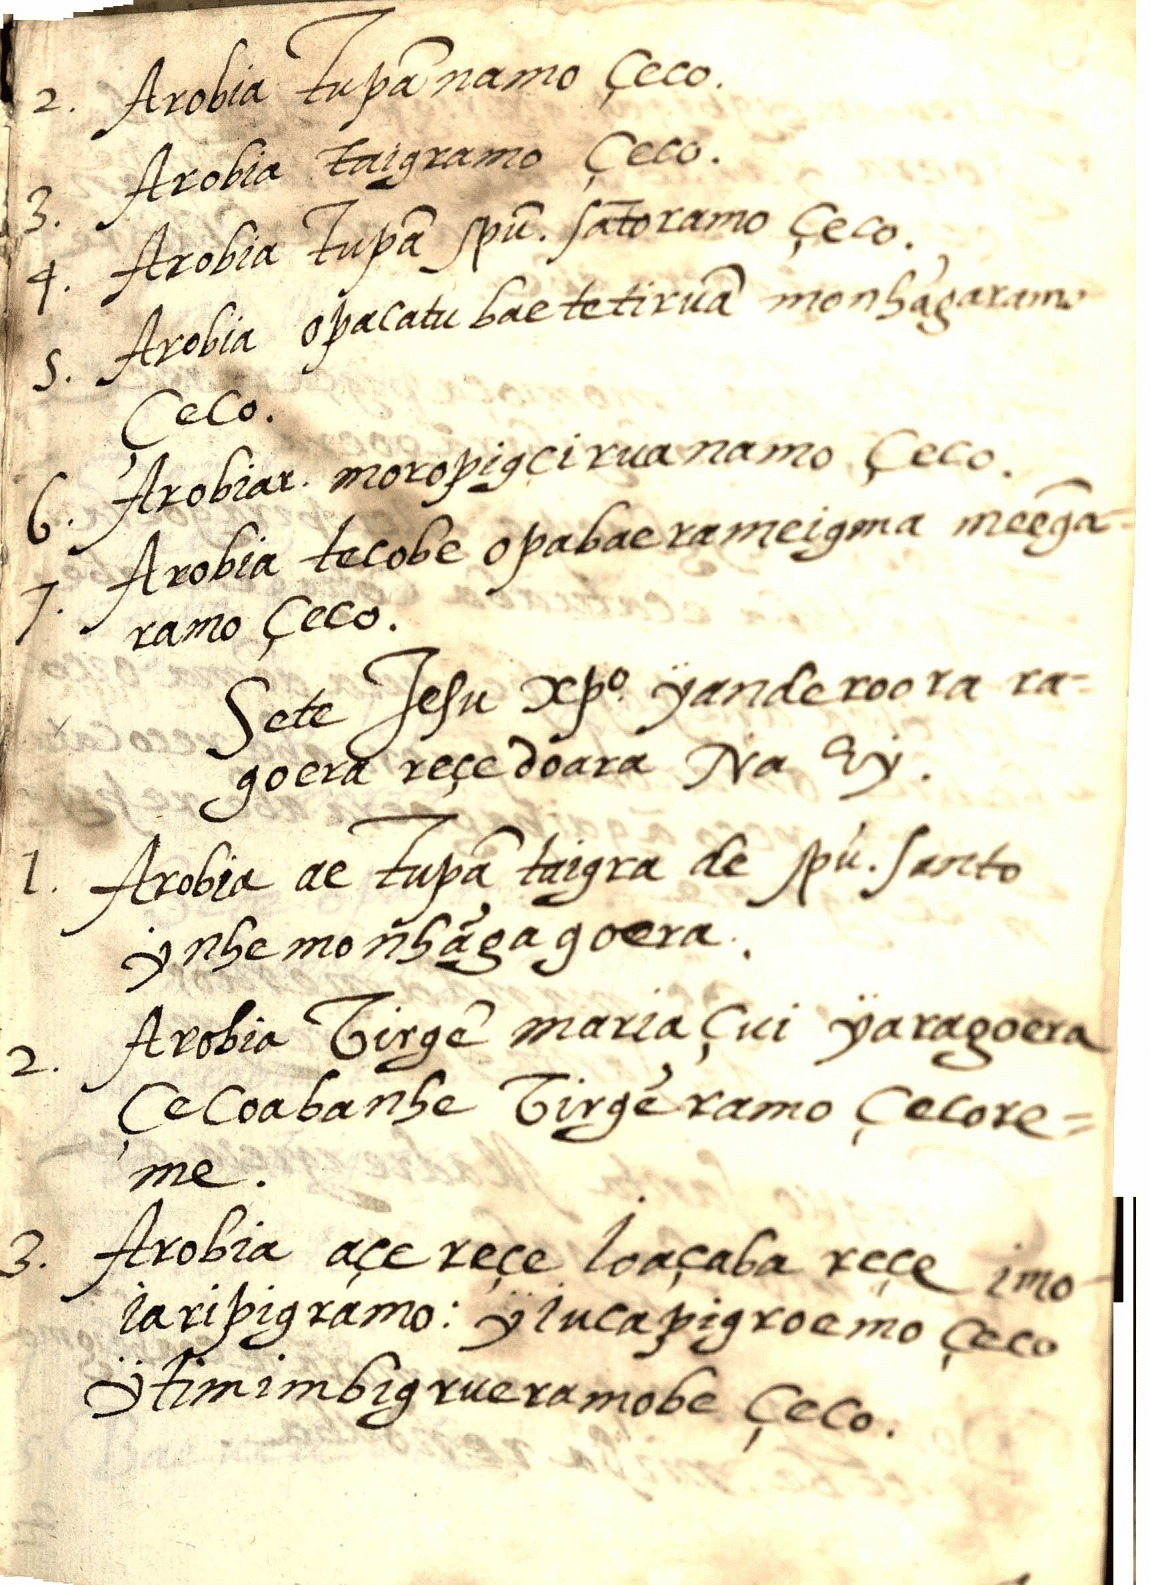 2. Arobia Tupã namo Çeco.
3. Arobia taigramo Çeco.
4. Arobia Tupã spũ. sãtoramo Çeco.
5. Arobia opacatu baetetiruã monhãgaramo
Çeco.
6. Arobiar. moropigçiruanamo Çeco.
7. Arobia tecobe opabaerameigma meẽga-
ramo Çeco.
Sete Jesu xpo. ÿanderoora ra-
goera reçedoara Na
1. Arobia ae Tupã taigra de spũ. santo
ynhemonhãgagoera.
2. Arobia Virgẽ maria çui ÿaragoera
Çecoabanhe Virgẽramo Çecore=
me.
3. Arobia açereçe Ioaçaba reçe imo-
iaripigramo: ÿiucapigroemo Çeco
ÿtimimbigrueramobe Çeco.